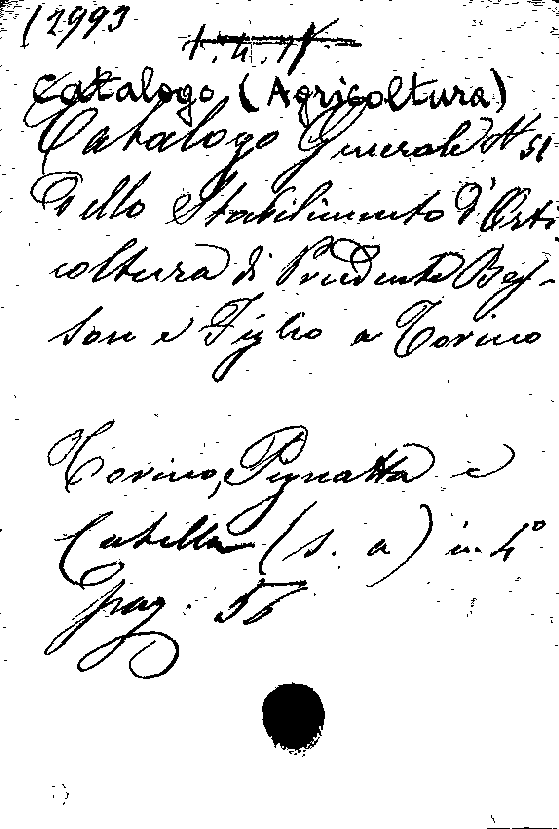 12993
Catalogo (Agricoltura)
Catalogo Generale N 51
Dello Stabilimento d'Orti
coltura di Prudente Bes-
son e Figlio a Torino
Torino, Pignatta e
Cabella (s. a) in 4°
pag. 56